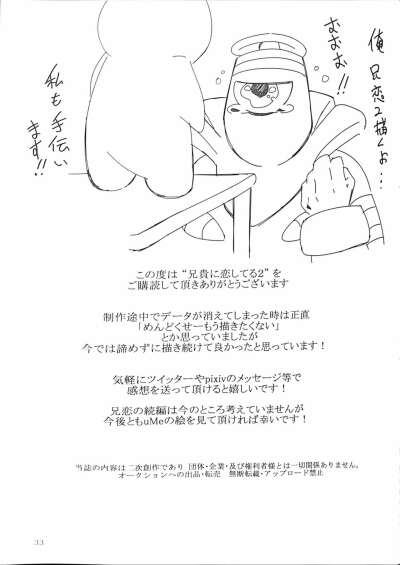 俺兄恋2描くよ…
むむむ!!
私も手伝い
ます!!
この度は“兄貴に恋してる2”を
ご購読して頂きありがとうございます
制作途中でデータが消えてしまった時は正直
「めんどくせーもう描きたくない」
とか思っていましたが
今では諦めずに描き続けて良かったと思っています！
気軽にツイッターやpixivのメッセージ等で
感想を送って頂けると嬉しいです！
兄恋の続編は今のところ考えていませんが
今後ともuMeの絵を見て頂ければ幸いです！
当誌の内容は二次創作であり 団体・企業・及び権利者様とは一切関係ありません。
オークションへの出品・転売　無断転載・アップロード禁止
33